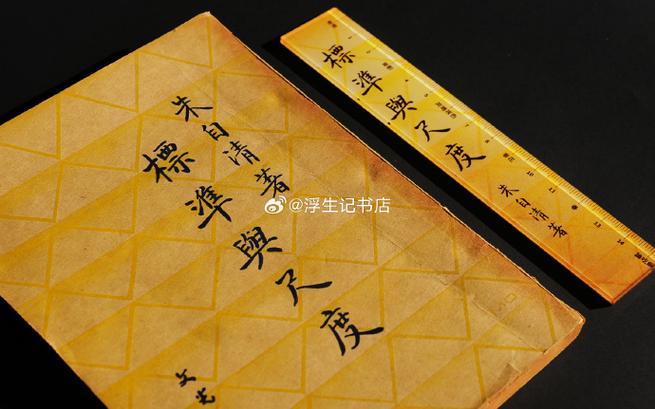 朱自清著
標準與尺度
文光
標準與尺度
朱自清著
@浮生记书店